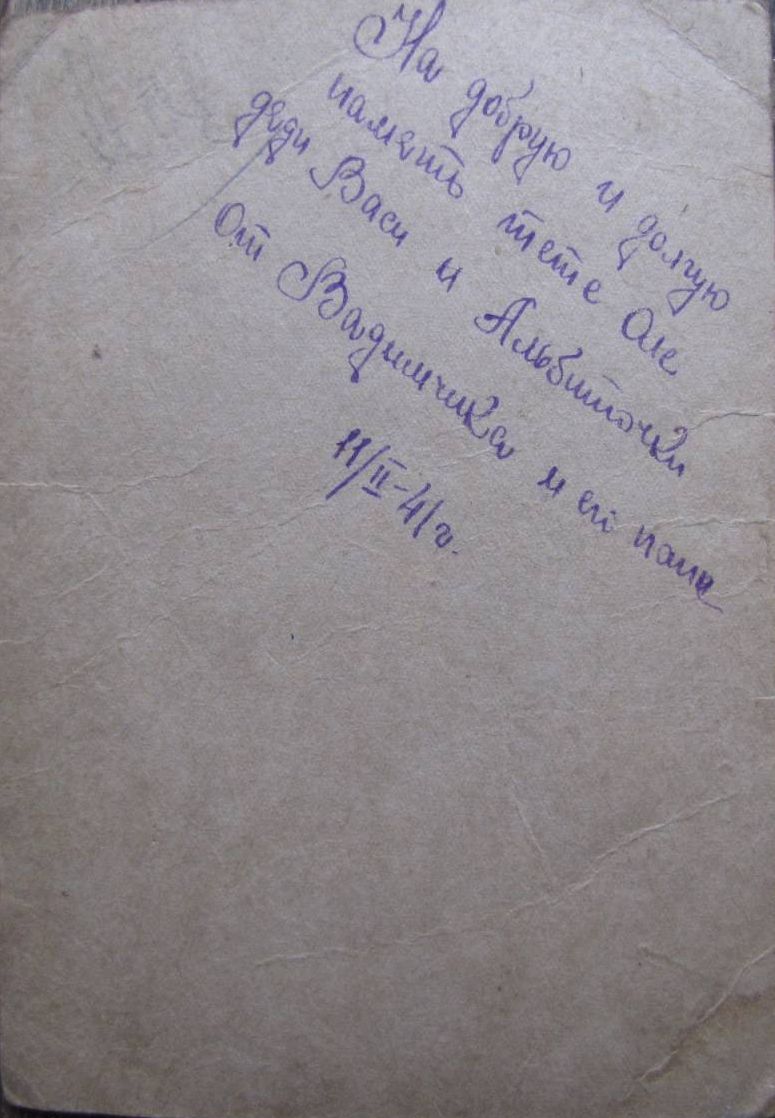 На добрую и долгую
память тете Оле
дяди Васи и Альбиточки
От Вадимчика и его папи
11/II-41г.